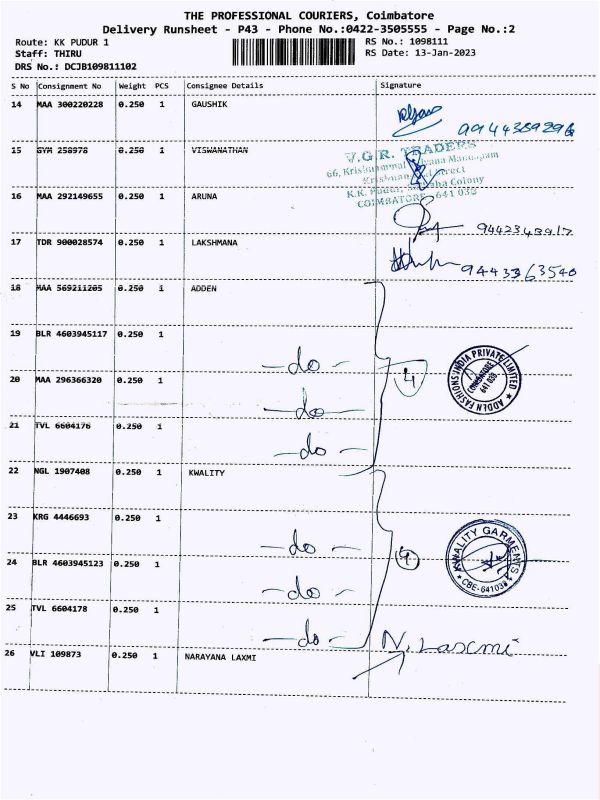 THE PROFESSIONAL COURIERS, Coimbatore
Delivery Runsheet - P43 - Phone No.:0422-3505555 - Page No.:2
Route: KK PUDUR 1 RS No.: 1098111
Staff: THIRU RS Date: 13-Jan-2023
DRS No.: DCJB109811102
S No Consignment No Weight PCS Consignee Details Signature
14 MAA 300220228 0.250 1 GAUSHIK
9944389296
15 GYM 258978 0.250 1 VISWANATHAN
V.G.R. TRADERS
COIMBATORE - 641 038
16 MAA 292149655 0.250 1 ARUNA
17 TDR 900028574 0.250 1 LAKSHMANA
9443363540
18 MAA 569211205 0.250 1 ADDEN
19 BLR 4603945117 0.250 1
-do-
4
ADDLN FASHIONS INDIA PRIVATE LIMITED
COIMBATORE
641 038
20 MAA 296366320 0.250 1
-do-
21 TVL 6604176 0.250 1
-do-
22 NGL 1907408 0.250 1 KWALITY
23 KRG 4446693 0.250 1
-do-
4
KWALITY GARMENTS
CBE-641038
24 BLR 4603945123 0.250 1
-do-
25 TVL 6604178 0.250 1
-do-
N. Laxmi
26 VLI 109873 0.250 1 NARAYANA LAXMI